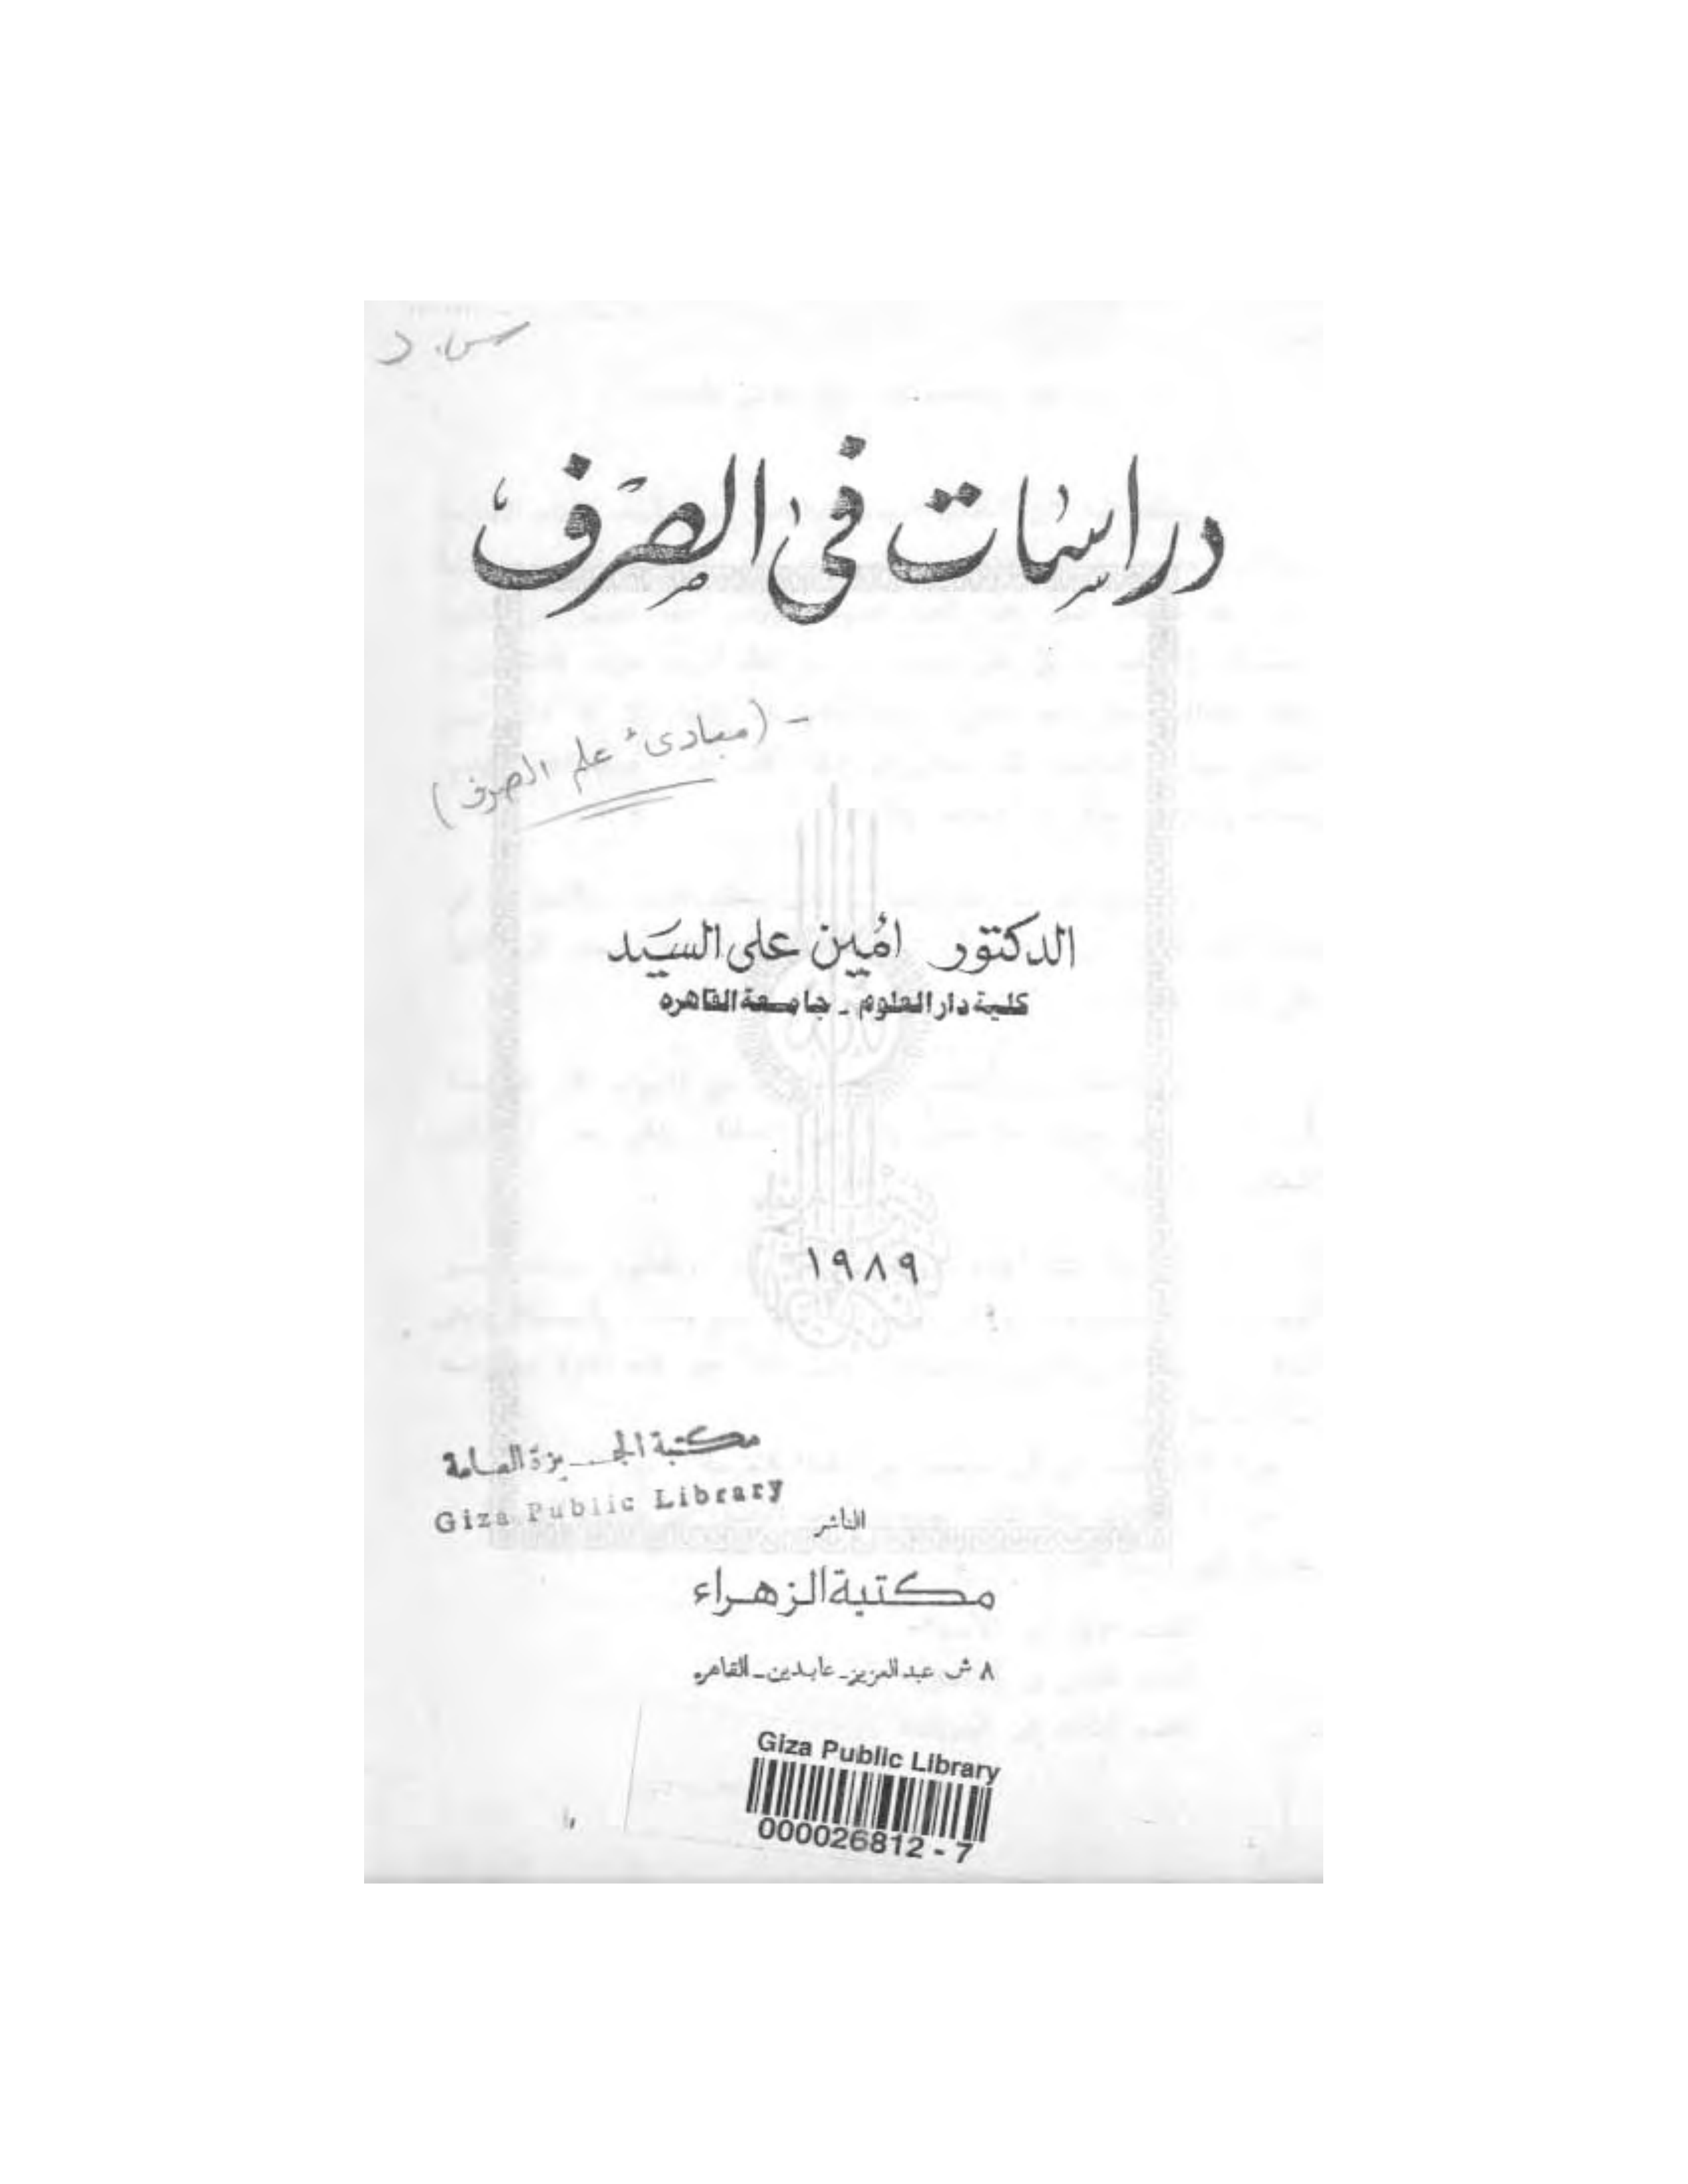 دراسات في الصرف
- (مبادئ علم الصرف)
الدكتور أمين على السيد
كلية دار العلوم - جامعة القاهره
١٩٨٩
مكتبة الجيزة العامة
Giza Public Library
الناشر
مكتبة الزهراء
٨ ش عبد العزيز - عابدين - القاهره
Giza Public Library
000026812 - 7